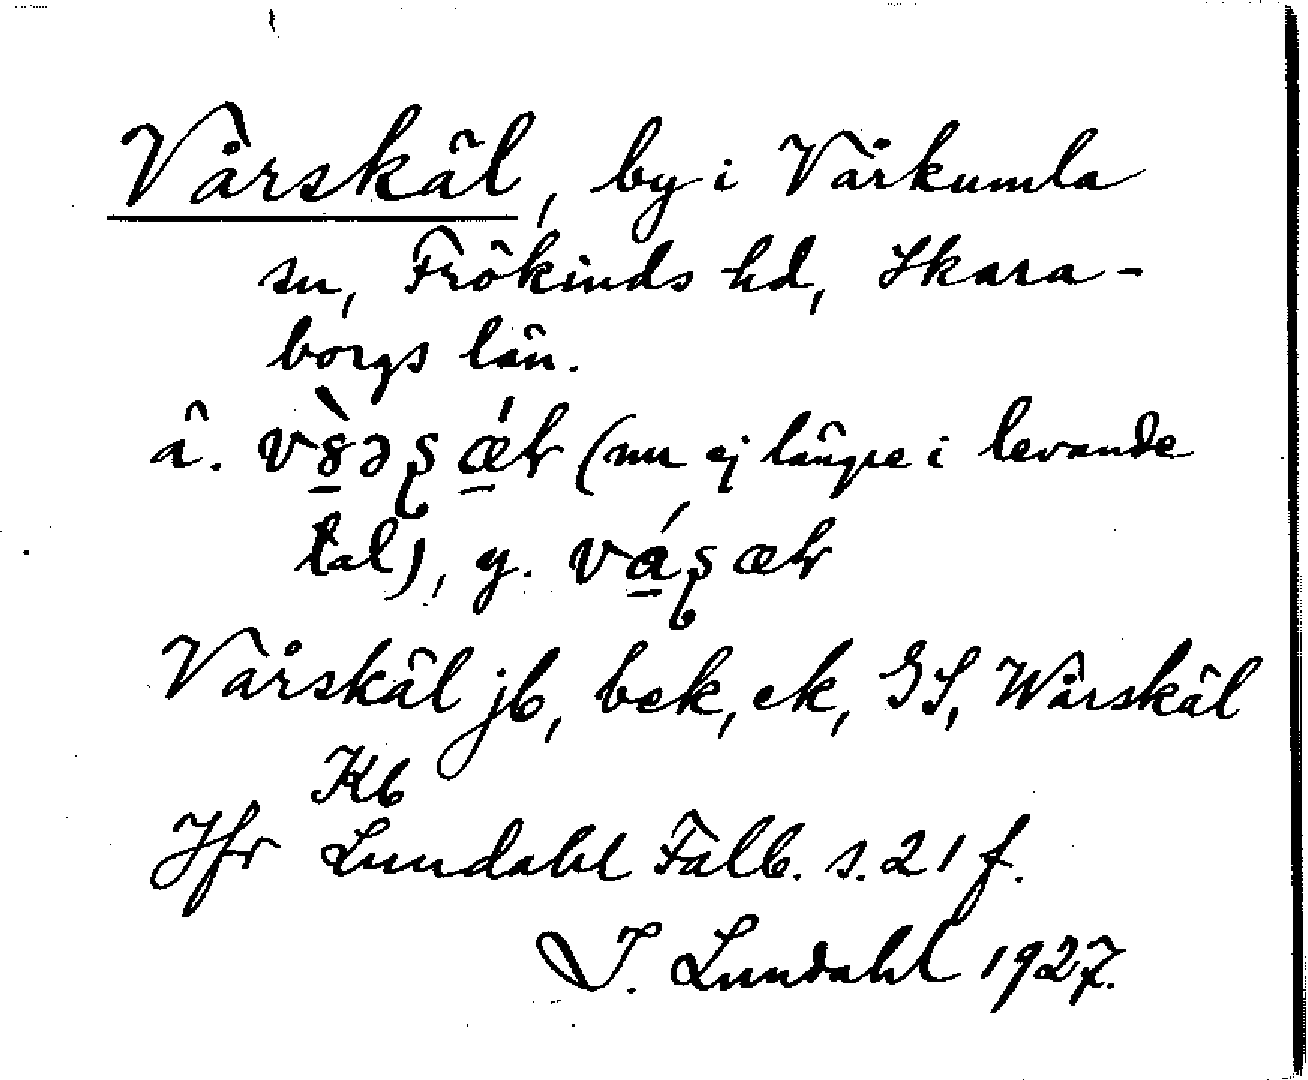 Vårskäl, by i Vårkumla
sn, Frökinds hd, Skara-
borgs län.
ä. v8̠̀əʂǽ̠ɫ (nu ej längre i levande
tal), y. vá̠ʂæɫ
Vårskäl jb, bek, ek, GS, Wårskäl
Kb
Jfr Lundahl Falb. s. 21 f.
I. Lundahl 1927.